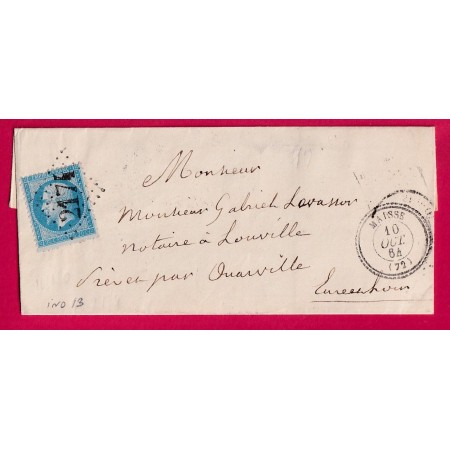 Monsieur
Monsieur Gabriel Levassor
notaire à Louville
Prévet par Ouarville
Eure et Loir
MAISSE
10
OCT.
64
(72)
IND 13